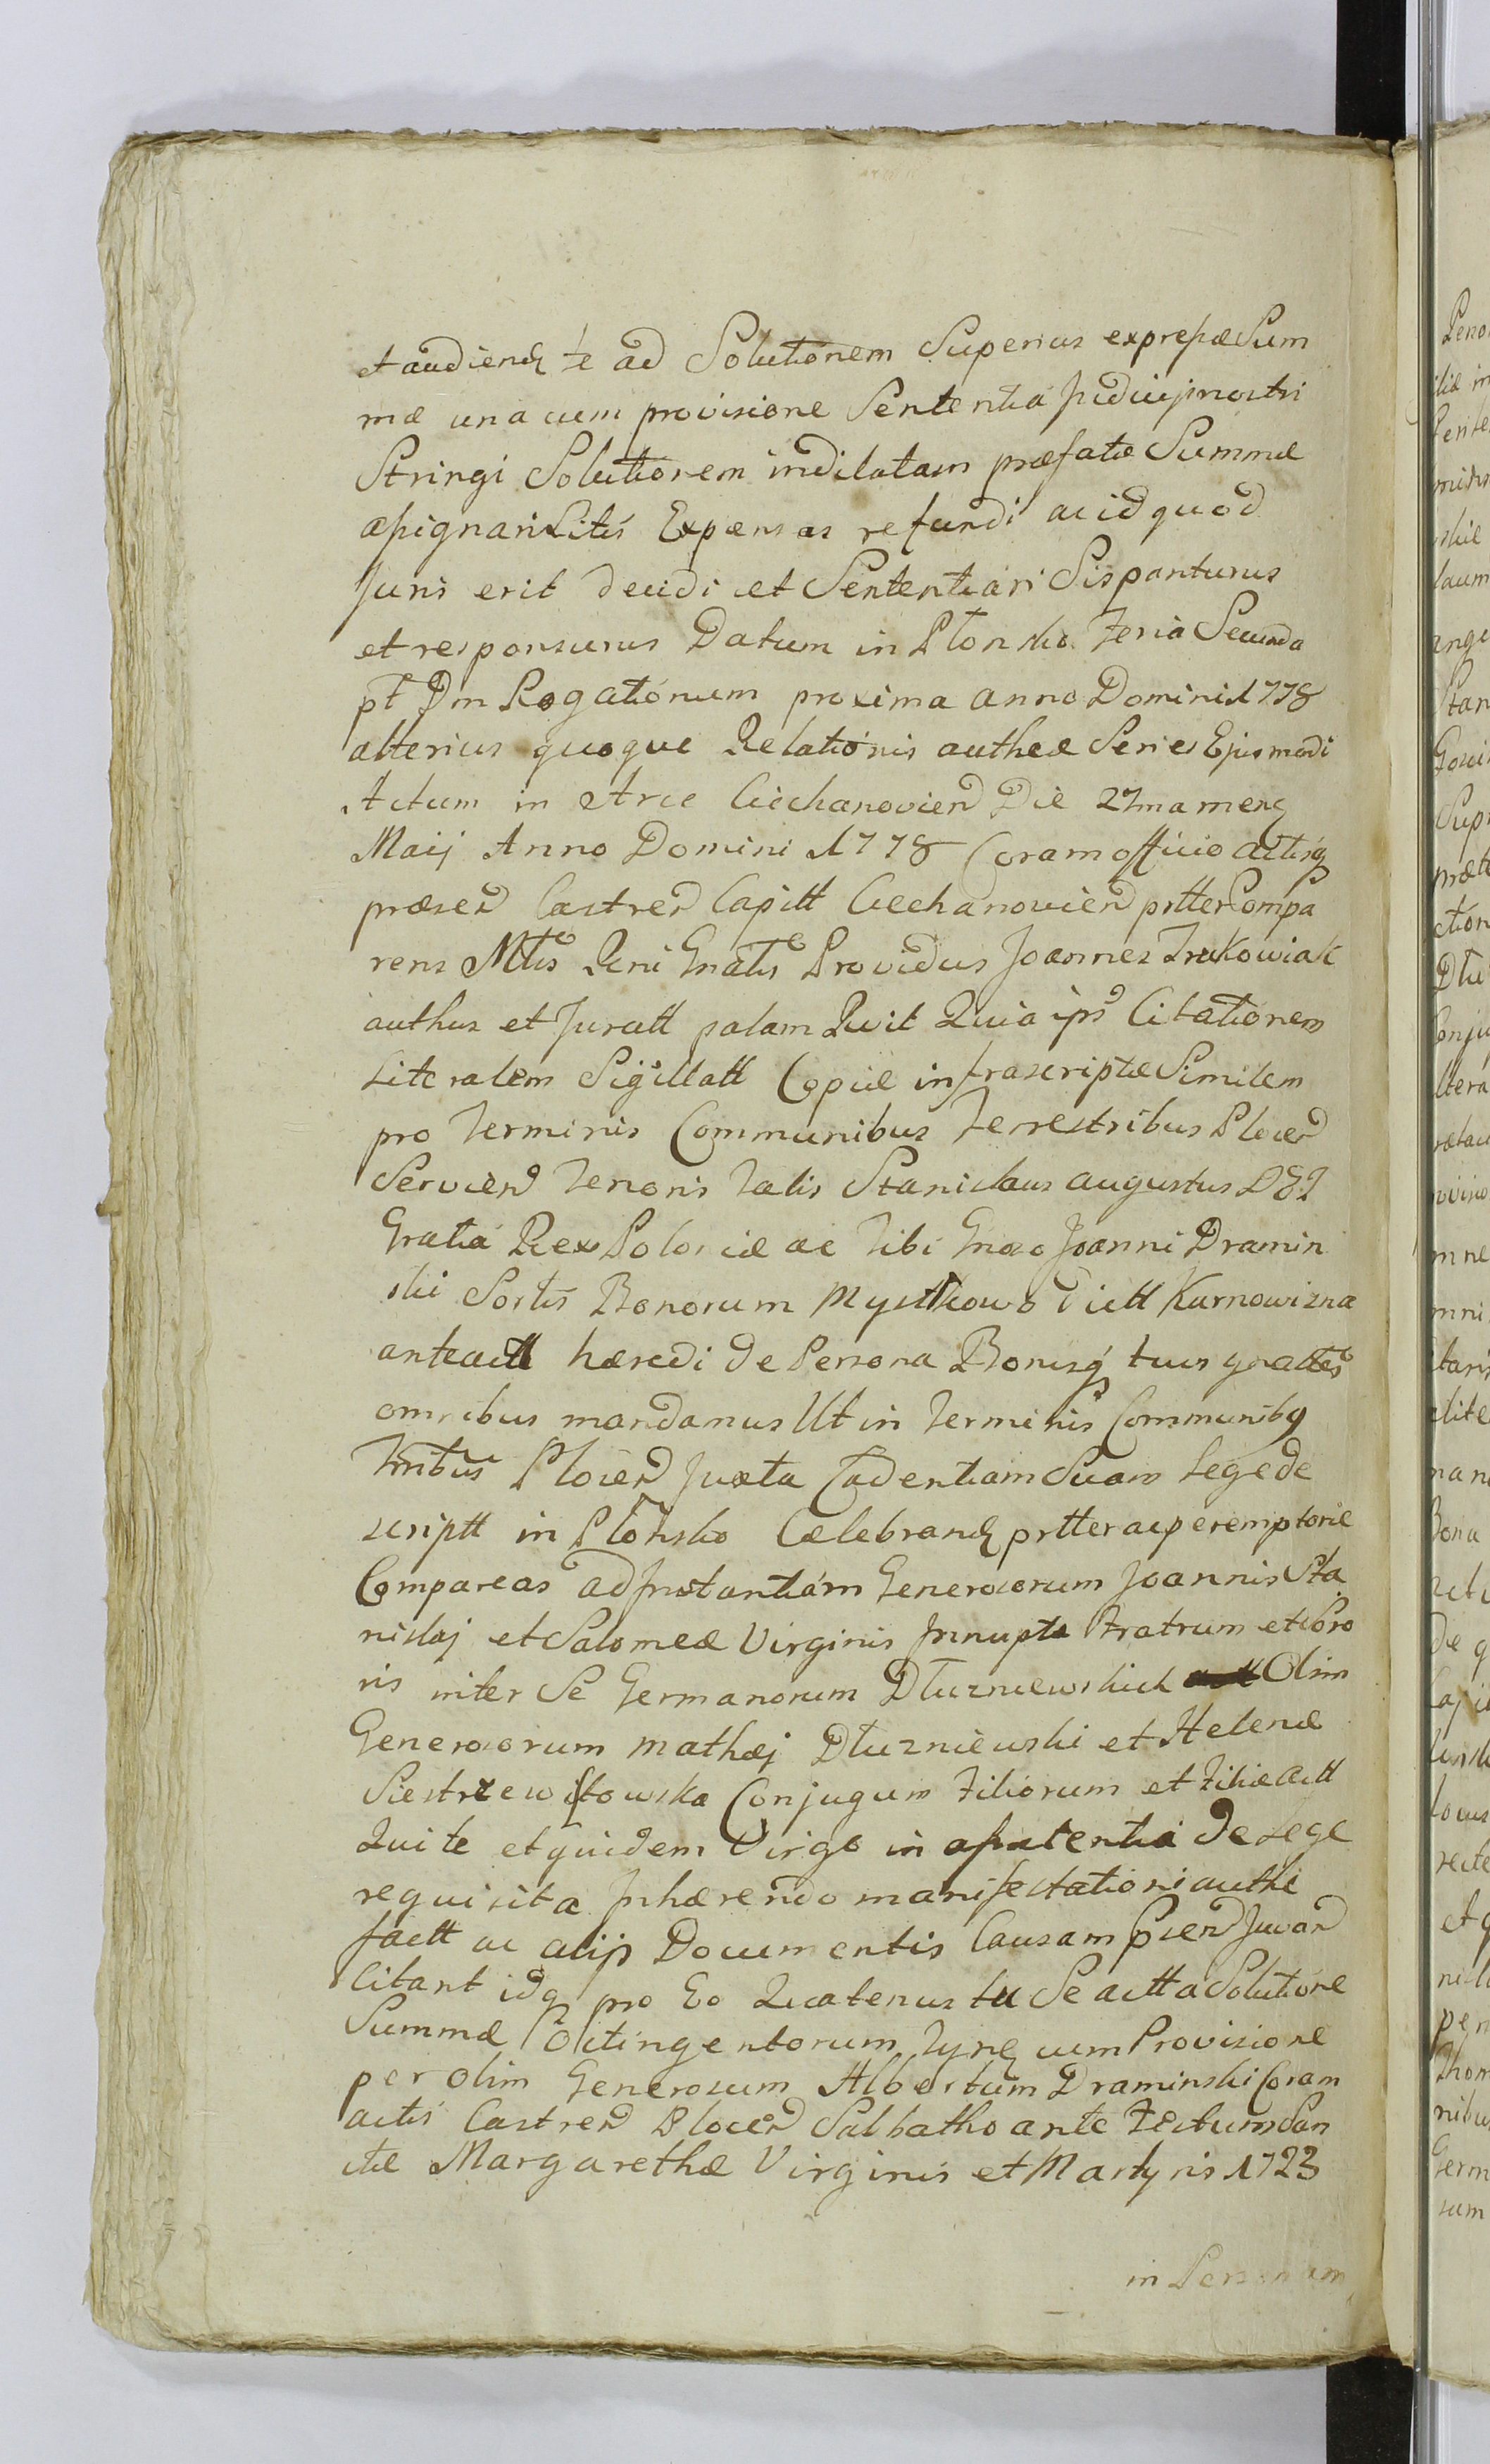 et audiend te ad Solutionem Superius expressæ Sum
mæ una cum provisione Sententia Judicij nostri
Stringi Solutionem indilatam præfatæ Summæ
assignari Litis Expensas refundi ac id quod
Juris erit decidi et Sententiari Sis pariturus
et responsurus Datum in Płonsko Feria Secunda
pt Dm Rogationum proxima anno Domini 1778
alterius quoque Relationis authcæ Series Ejusmodi
Actum in Arce Ciechanovien Die 27ma mens
Maij Anno Domini 1778 Coram officio actisq
præsen Castren Capitt Ciechanovien prtter Compa
rens Mtis Reni Gnalis Providus Joannes Trukowiak
authus et Juratt palam Rvit Quia ips Citationem
Literalem Sigillatt Copiæ infrascriptæ Similem
pro Terminis Communibus Terrestribus Plocen
Servien Tenoris Talis Stanislaus augustus DEI
Gratia Rex Poloniæ ac Tibi Gnoso Joanni Dramin
ski Sortis Bonorum Mystkowo dictt Kurnowizna
anteactt hæredi de Persona Bonisq tuis gnaltes
omnibus mandamus Ut in Terminis Communibq
Trribus Plocen Juxta Cadentiam Suam Lege de
scriptt in Płonsko Celebrand prtter ac peremptorie
Compareas ad Instantiam Generosorum Joannis Sta
nislaj et Salomeæ Virginis Innupta Fratrum et Soro
ris inter Se Germanorum Dłuzniewskich Olim
Generosorum Mathæj Dłuzniewski et Helenæ
Siestrzewitowska Conjugum Filiorum et Filiæ Actt
Qui te et quidem Virgo in assistentia de Lege
requisita Inhærendo manifestationi authe
factt ac alijs Documentis Causam psen Juvan
Citant idq pro Eo Quatenus tu Se actt a Solutione
Summæ Octingentorum Tynf cum Provisione
per olim Generosum Albertum Draminski Coram
actis Castren Plocen Sabbatho ante Festum San
ctæ Margarethæ Virginis et Martyris 1723
in Personam